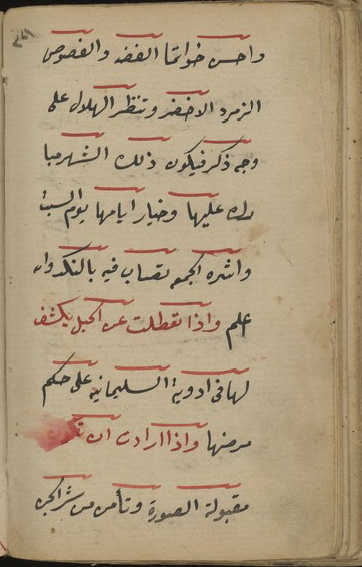 واحسن خواتما الفضه والفصوص
الزمرد الاخضر وتنظر الهلال على
وجه ذكر فيكون ذلك الشهر مبا
رك عليها وخيار ايامها يوم السبت
واشره الجمعه تصاب فيه بالنكد والله
اعلم واذا تعطلت عن الحبل يكشف
لها فى ادوية السليمانيه على حكم
مرضها واذا ارادت ان تكون
مقبولة الصورة وتأمن من شر الجن